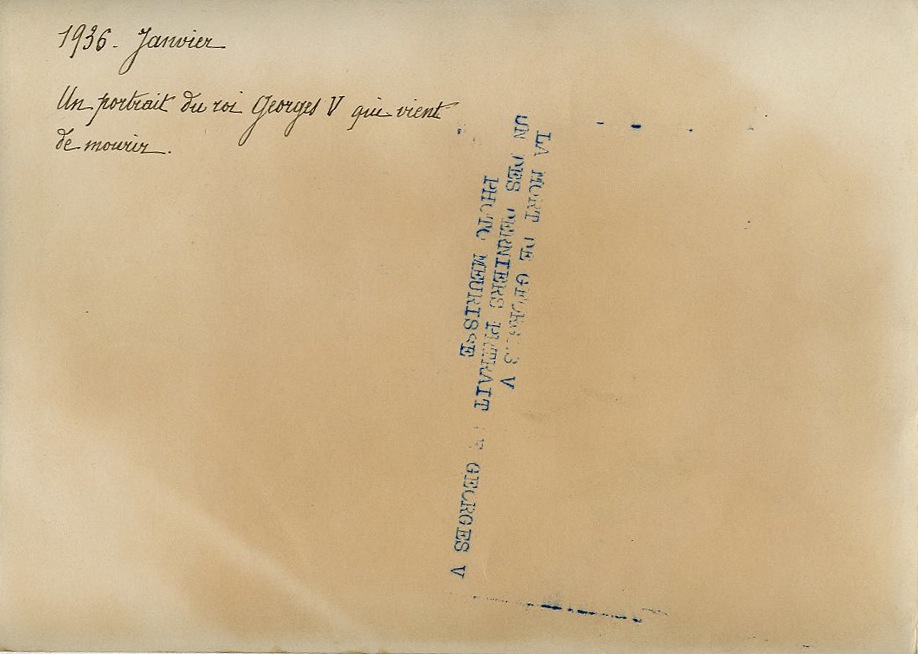 1936. Janvier
Un portrait du roi Georges V qui vient
de mourir.
LA MORT DE GEORGES V
UN DES DERNIERS PORTRAIT DE GEORGES V
PHOTO MEURISSE